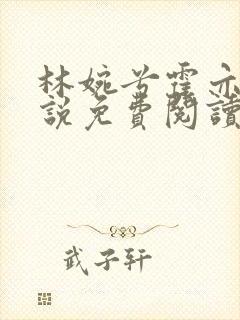 林婉兮霍亦
說免費閱讀
武子轩